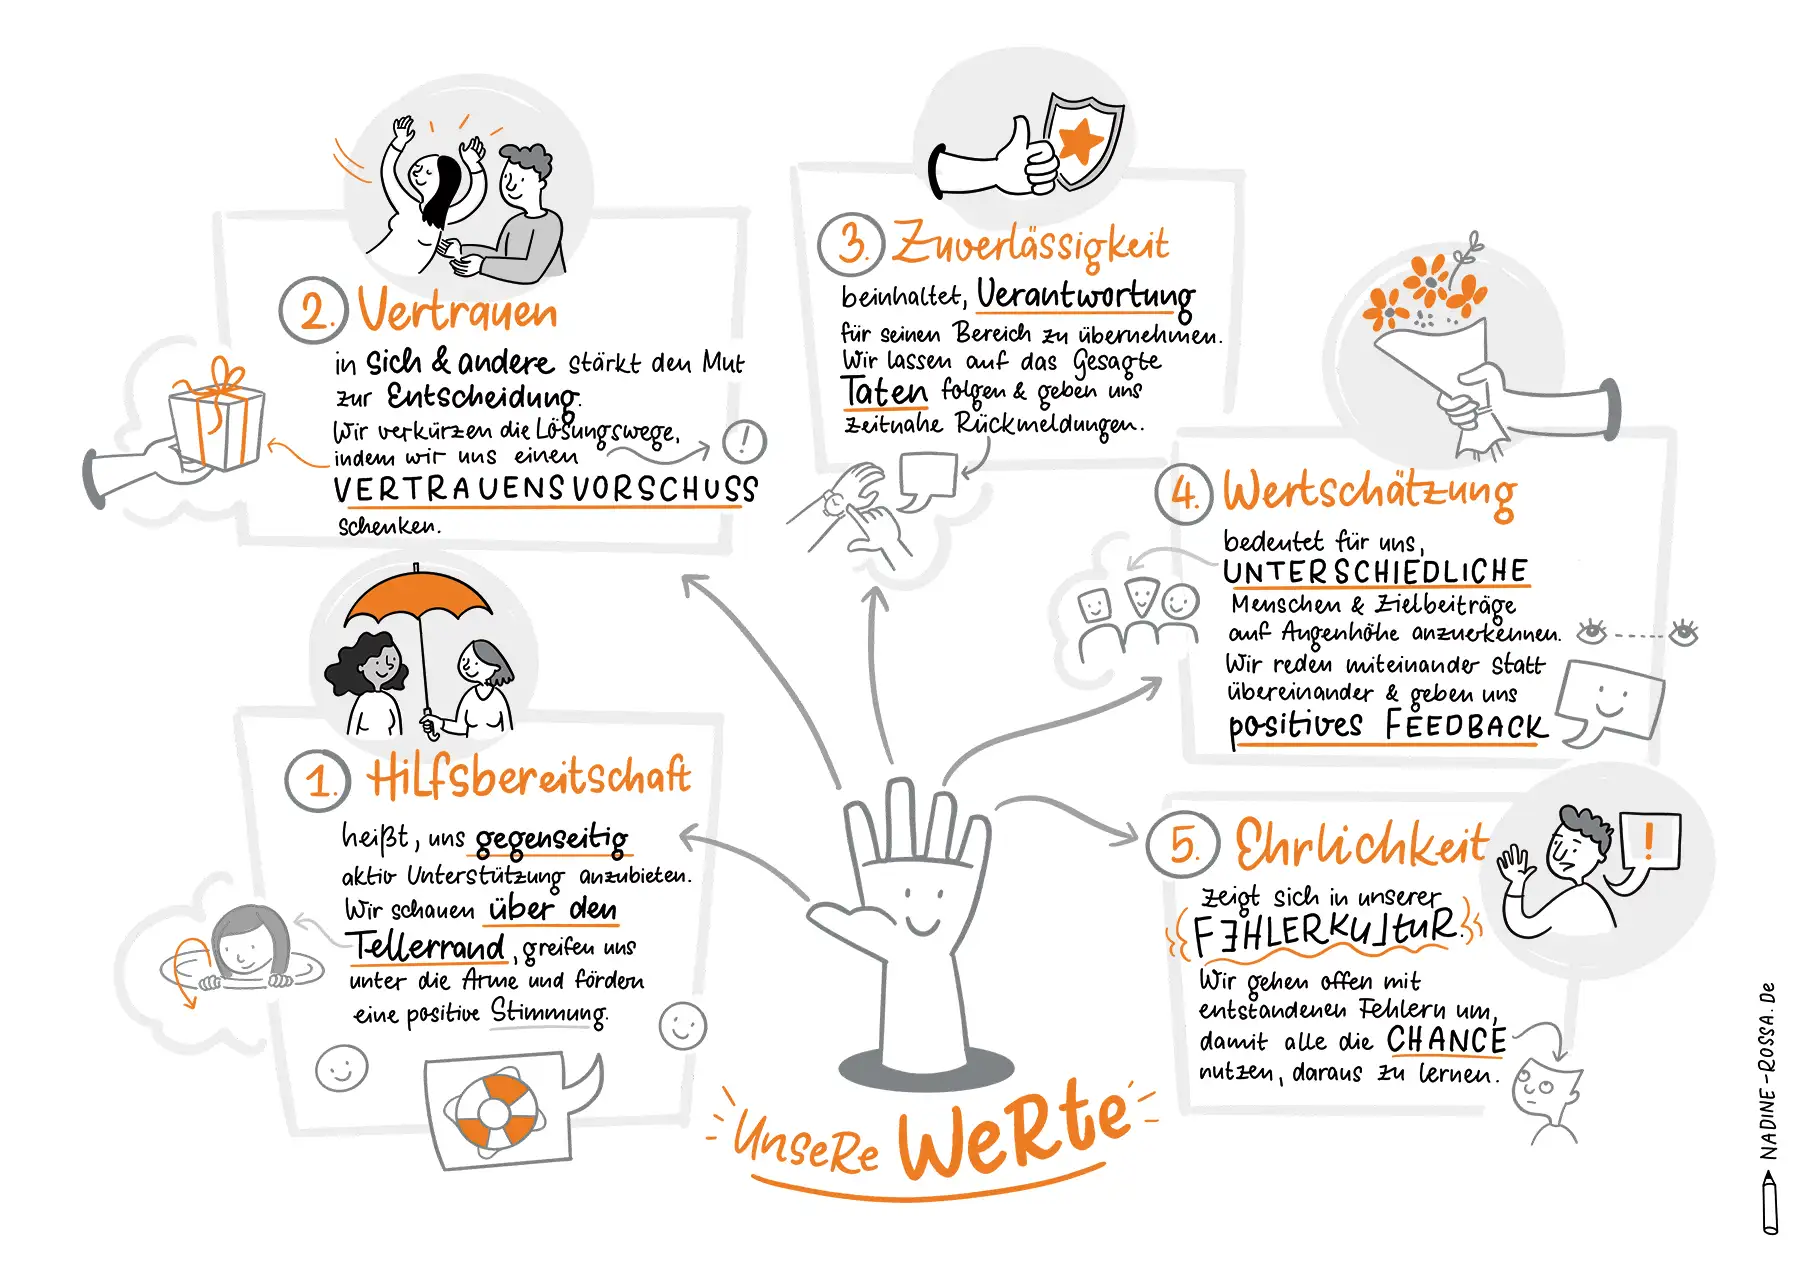 2. Vertrauen
in sich & andere stärkt den Mut
zur Entscheidung.
Wir verkürzen die Lösungswege,
indem wir uns einen
VERTRAUENSVORSCHUSS
schenken.
!
3. Zuverlässigkeit
beinhaltet, Verantwortung
für seinen Bereich zu übernehmen.
Wir lassen auf das Gesagte
Taten folgen & geben uns
zeitnahe Rückmeldungen.
4. Wertschätzung
bedeutet für uns,
UNTERSCHIEDLICHE
Menschen & Zielbeiträge
auf Augenhöhe anzuerkennen.
Wir reden miteinander statt
übereinander & geben uns
positives FEEDBACK
1. Hilfsbereitschaft
heißt, uns gegenseitig
aktiv Unterstützung anzubieten.
Wir schauen über den
Tellerrand, greifen uns
unter die Arme und fördern
eine positive Stimmung.
5. Ehrlichkeit
!
zeigt sich in unserer
FEHLERKULTUR.
Wir gehen offen mit
entstandenen Fehlern um,
damit alle die CHANCE
nutzen, daraus zu lernen.
UNSERE WERTE
NADINE-ROSSA.De